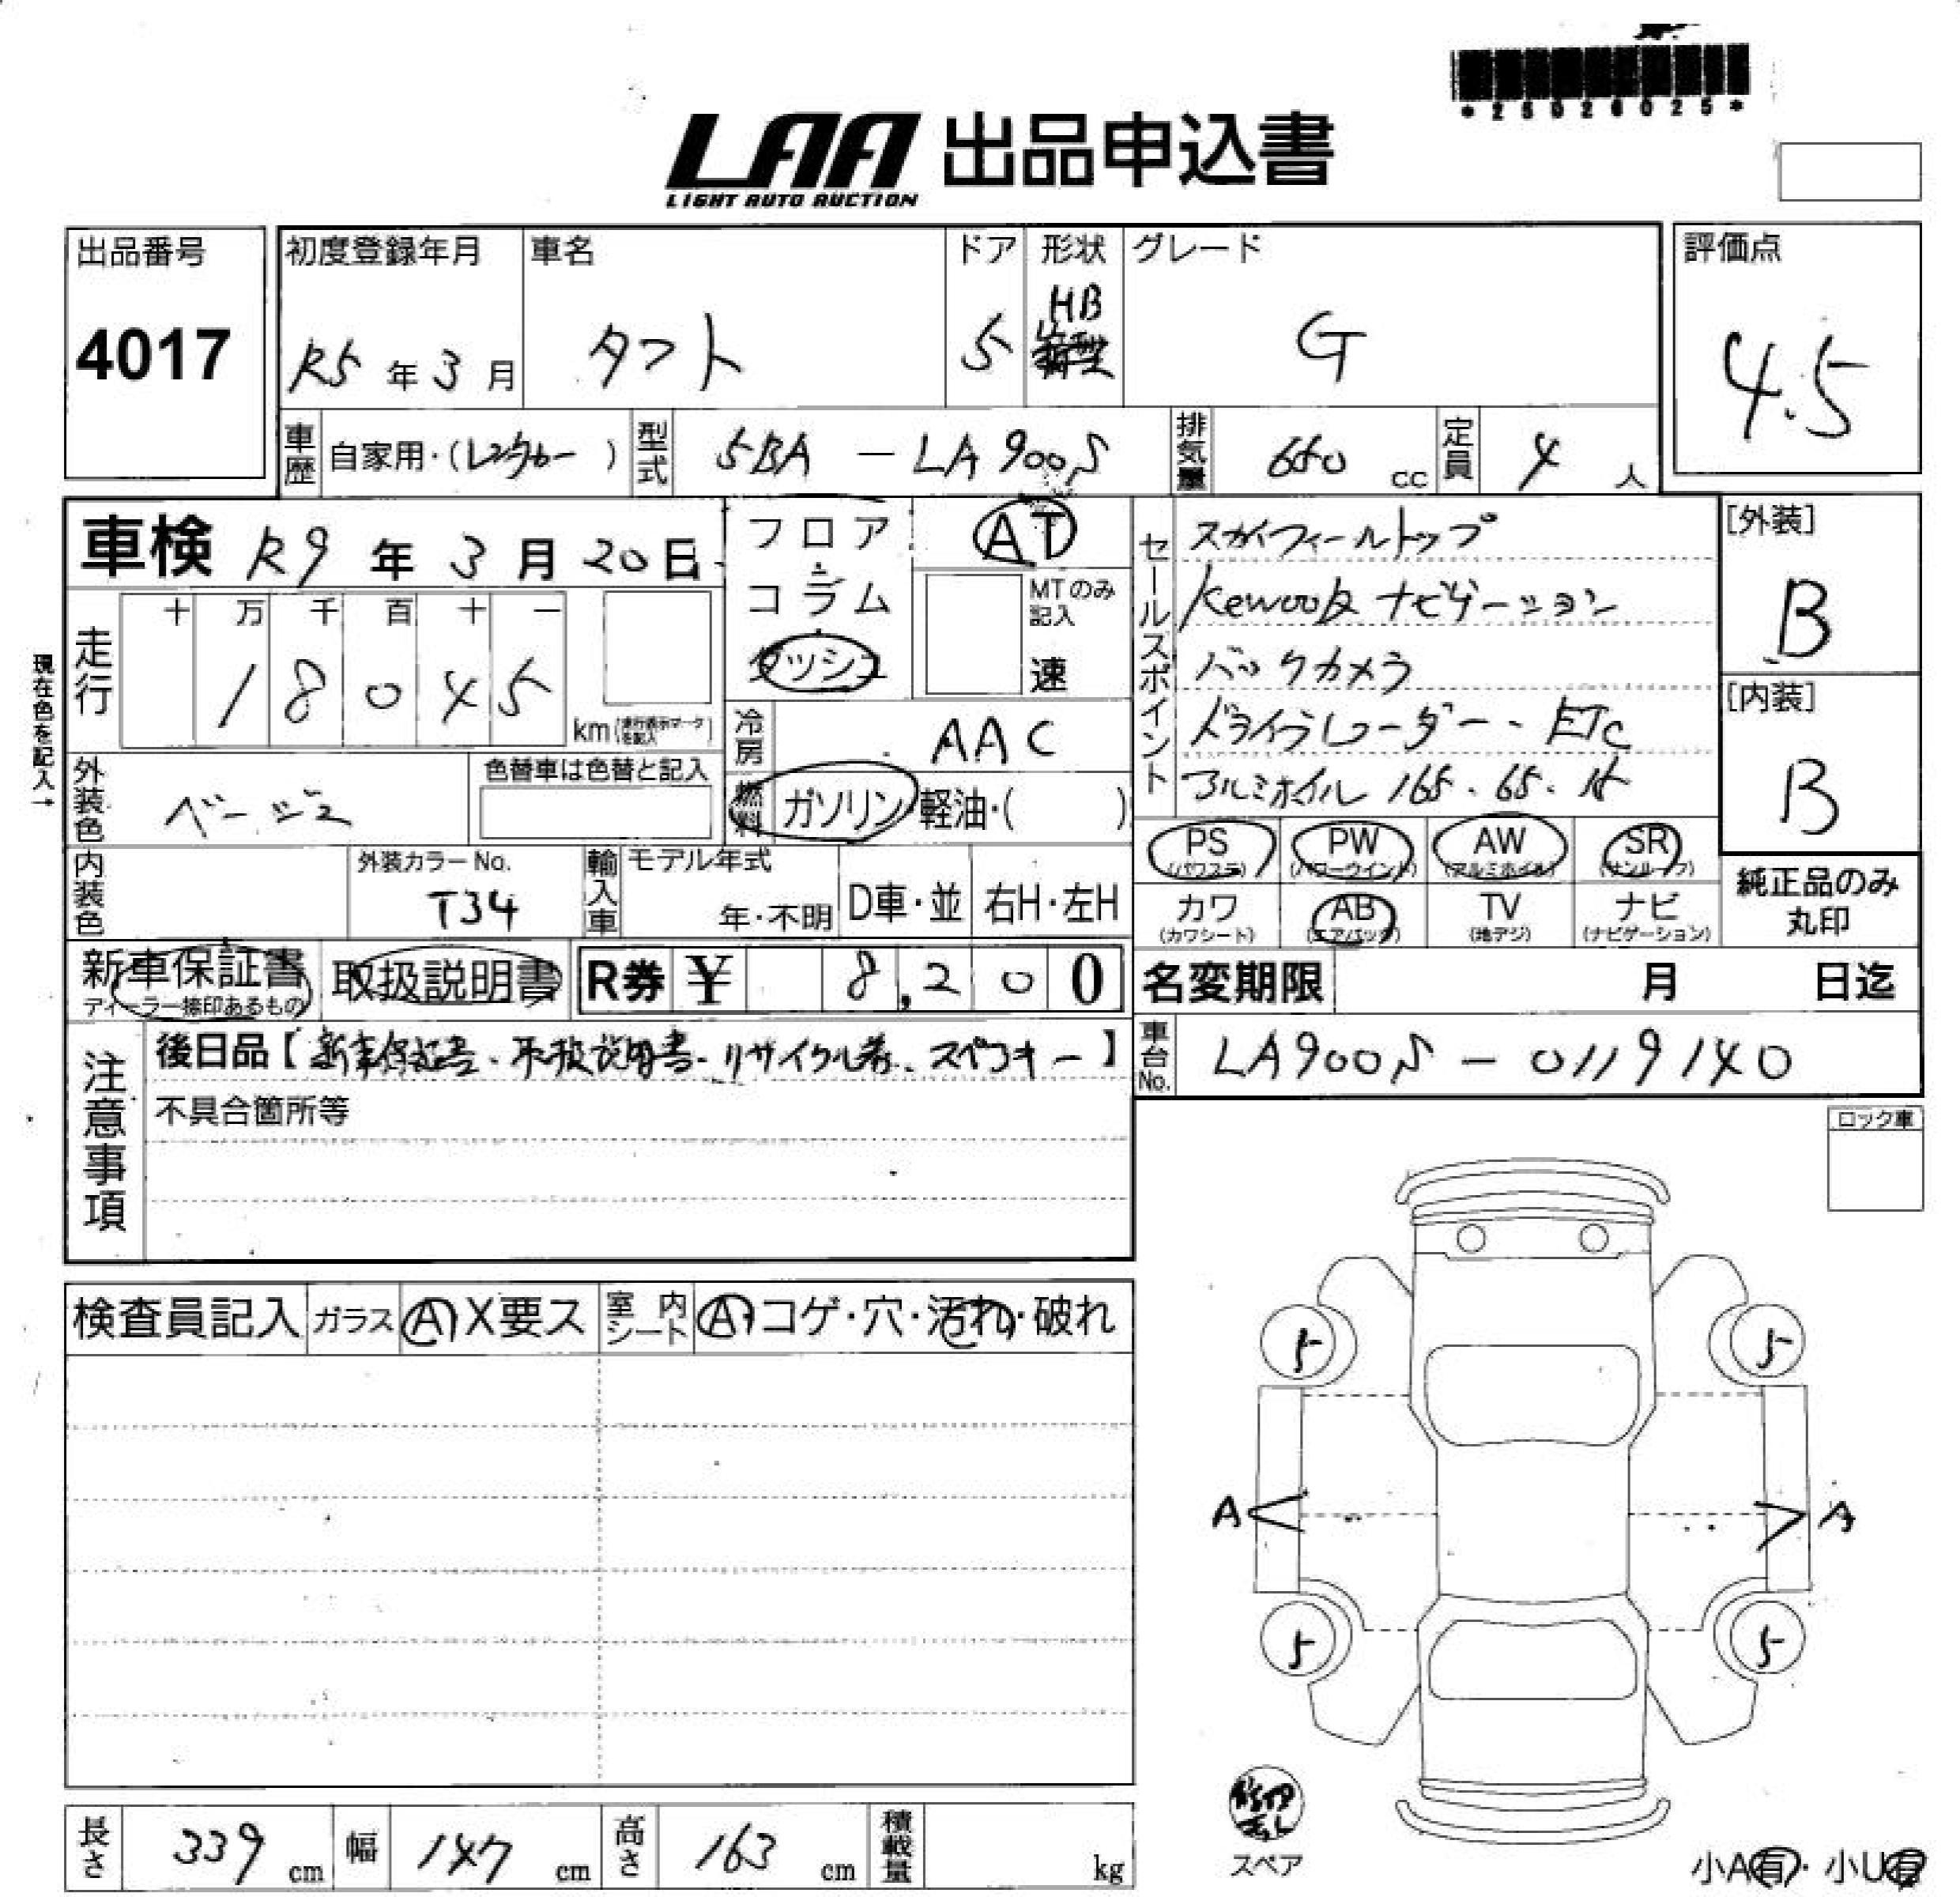 *25026025*
LAA 出品申込書
LIGHT AUTO AUCTION
出品番号
4017
初度登録年月
R5年3月
車名
タフト
ドア
5
形状
HB
グレード
G
評価点
4.5
車歴 自家用・(レンタカー)
型式 5BA - LA900S
排気量 660 cc
定員 4 人
車検 R9年3月20日
フロア
コラム
ダッシュ
AT
MTのみ記入
速
セールスポイント
スカイフィールトップ
ナビゲーション
バックカメラ
ETC
アルミホイル 165.65.15
[外装]
B
[内装]
B
現在色を記入→
走行
十 万 千 百 十 一
1 8 0 4 5
km (走行表示マークを記入)
冷房 AAC
外装色 ベージュ
色替車は色替と記入
燃料 ガソリン・軽油・( )
PS (パワステ)
PW (パワーウインド)
AW (アルミホイル)
SR (サンルーフ)
カワ (カワシート)
AB (エアバッグ)
TV (地デジ)
ナビ (ナビゲーション)
純正品のみ
丸印
内装色
外装カラーNo.
T34
輸入車
モデル年式
年・不明
D車・並
右H・左H
新車保証書
ディーラー捺印あるもの
取扱説明書
R券 ¥ 8,200
名変期限 月 日迄
注意事項
後日品【新車保証書・取扱説明書・リサイクル券・スペアキー】
不具合箇所等
車台No. LA900S - 0119140
ロック車
検査員記入
ガラス A X要ス
室内シート A・コゲ・穴・汚れ・破れ
5
5
A
A
5
5
スペア
小A有・小U有
長さ 339 cm
幅 147 cm
高さ 163 cm
積載量 kg